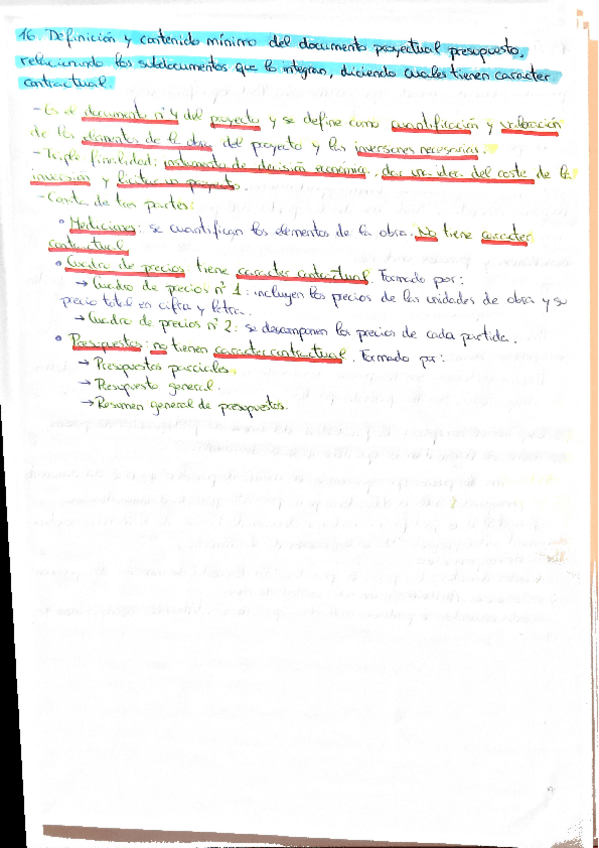 16. Definición y contenido mínimo del documento proyectual presupuesto,
relacionando los subdocumentos que lo integran, diciendo cuales tienen carácter
contractual.
- Es el documento nº4 del proyecto y se define como cuantificación y valoración
de los elementos de la obra del proyecto y las inversiones necesarias.
- Triple finalidad: instrumento de decisión económica, dar una idea del coste de la
inversión y licitar un proyecto.
- Consta de tres partes:
° Mediciones: se cuantifican los elementos de la obra. No tiene caracter
contractual
° Cuadro de precios tiene caracter contractual. Formado por:
→ Cuadro de precios nº 1: incluyen los precios de las unidades de obra y su
precio total en cifra y letra.
→ Cuadro de precios nº 2: se descomponen los precios de cada partida.
° Presupuestos: no tienen caracter contractual. Formado por:
→ Presupuestos parciales.
→ Presupuesto general.
→ Resumen general de presupuestos.